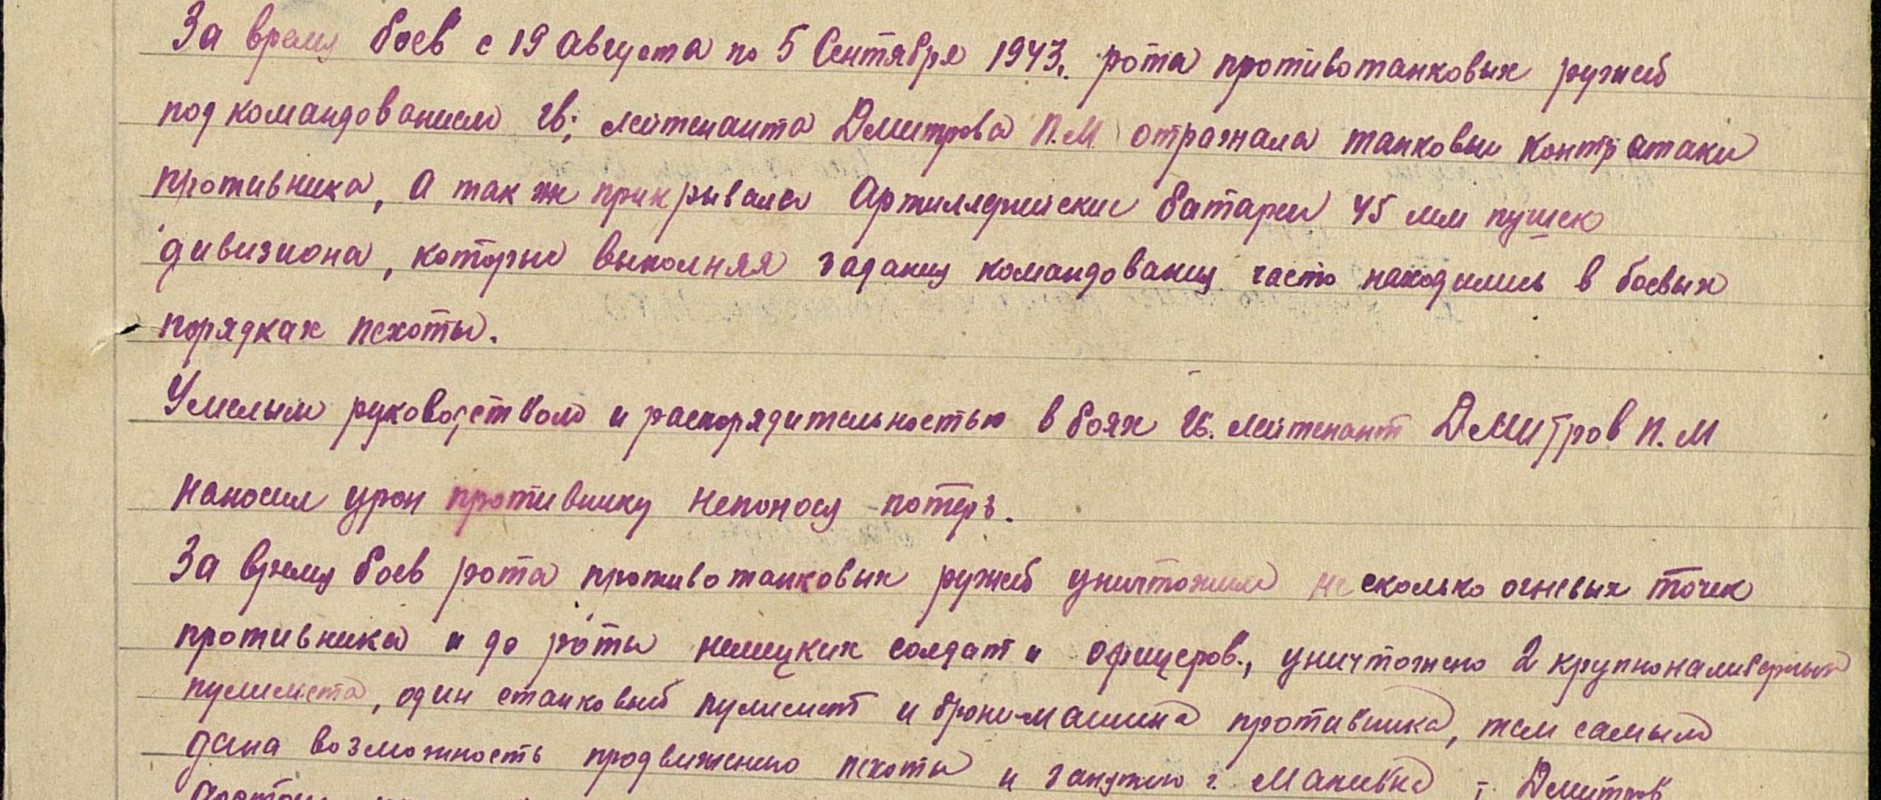 За время боев с 19 Августа по 5 Сентября 1943. рота противотанковых ружей
под командованием гв; лейтенанта Дмитрова П.М отражала танковые контр атаки
противника, а так же прикрывала Артиллерийские батареи 45 мм пушек
дивизиона, которые выполняя задания командования часто находились в боевых
порядках пехоты.
Умелым руководством и распорядительностью в боях гв. лейтенант Дмитров П.М
наносил урон противнику непонося потерь.
За время боев рота противотанковых ружей уничтожила несколько огневых точек
противника и до роты немецких солдат и офицеров., уничтожено 2 крупнокалиберных
пулимета, один станковый пулимет и брони-машина противника, тем самым
дана возможность продвижению пехоты и занятию г. Макивка, т. Дмитров